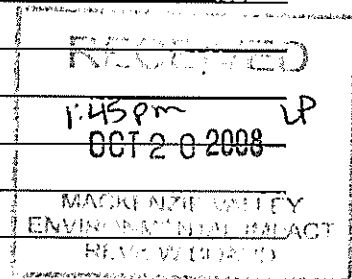 RECEIVED
1:45 pm LP
OCT 20 2008
MACKENZIE VALLEY
ENVIRONMENTAL IMPACT
REVIEW BOARD